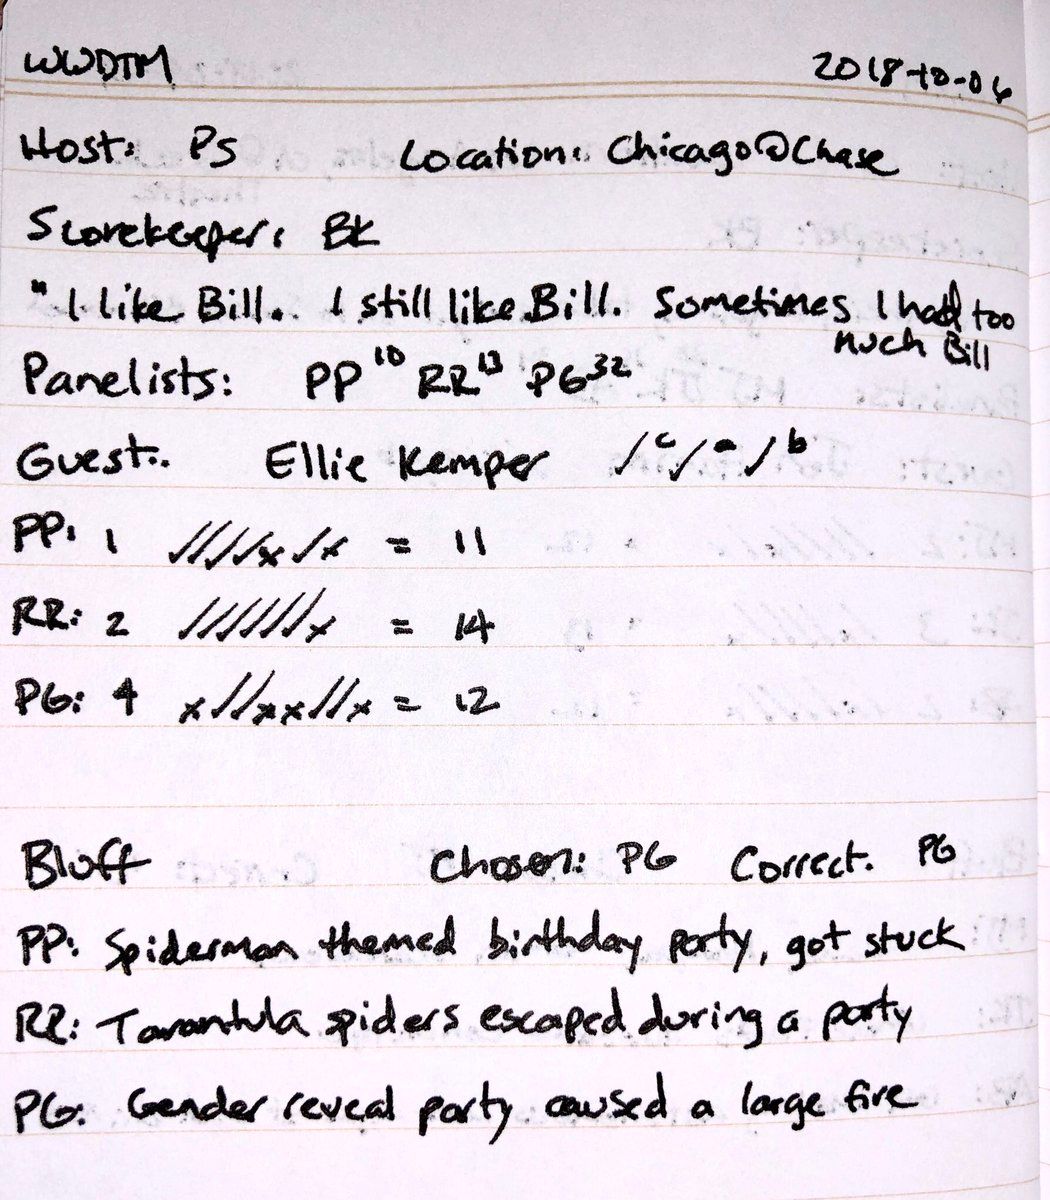 WWDTM 2018-10-06
Host: PS Location: Chicago@Chase
Scorekeeper: BK
"I like Bill. I still like Bill. Sometimes I had too
much Bill
Panelists: PP 10 RR 13 PG 32
Guest: Ellie Kemper /c /a /b
PP: 1 ////x/x = 11
RR: 2 //////x = 14
PG: 4 x//xx//x = 12
Bluff Chosen: PG Correct. PG
PP: Spiderman themed birthday party, got stuck
RR: Tarantula spiders escaped during a party
PG: Gender reveal party caused a large fire